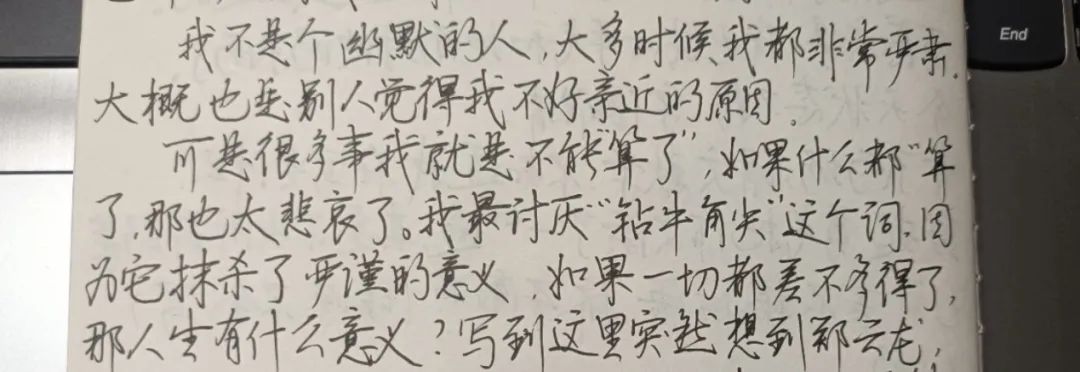 End
我不是个幽默的人，大多时候我都非常严肃，
大概也是别人觉得我不好亲近的原因，
可是很多事我就是不能“算了”，如果什么都“算
了，那也太悲哀了。我最讨厌“钻牛角尖”这个词，因
为它抹杀了严谨的意义，如果一切都差不多得了，
那人生有什么意义？写到这里突然想到郑云龙，